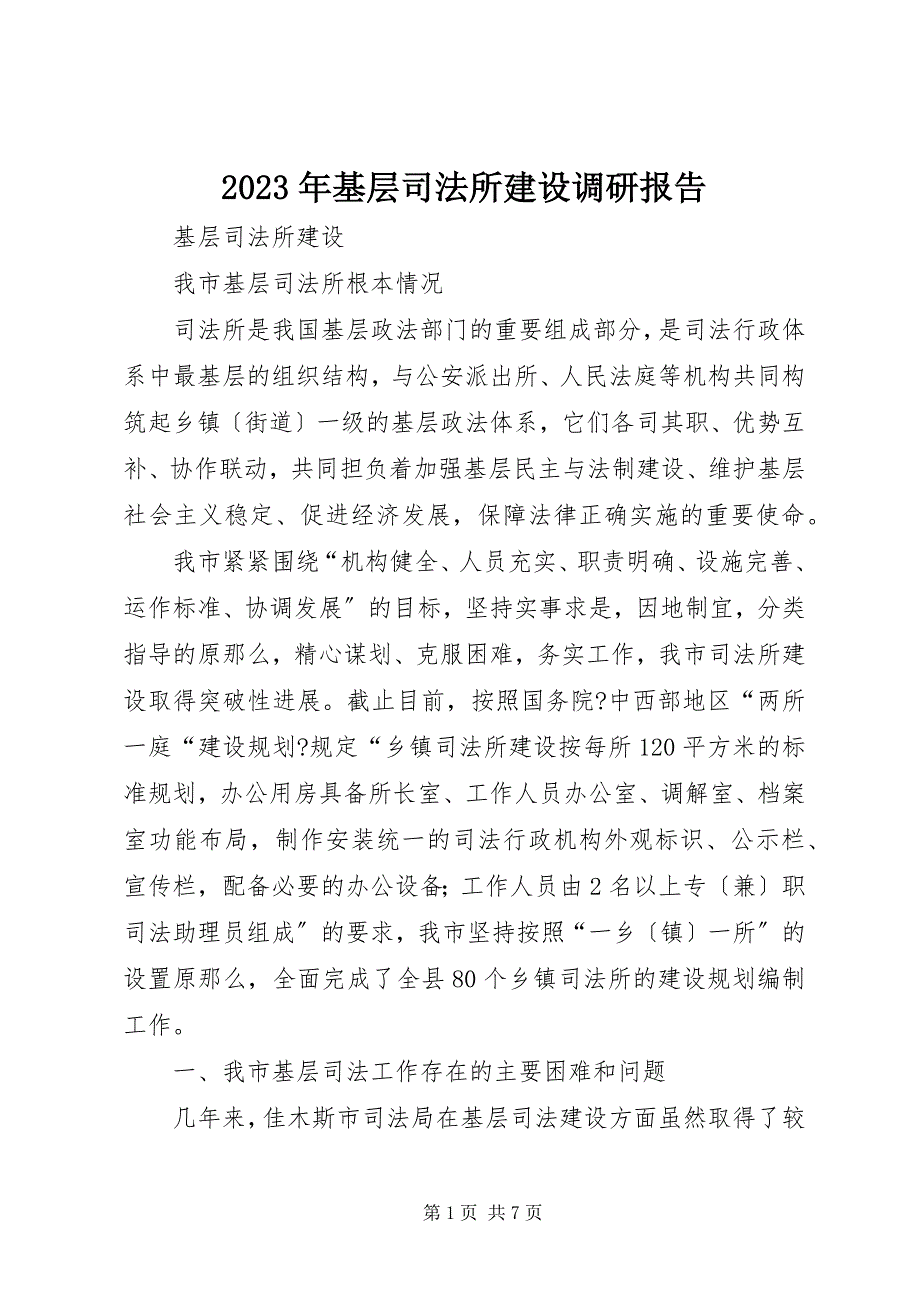 2023 年基层司法所建设调研报告
基层司法所建设
我市基层司法所根本情况
司法所是我国基层政法部门的重要组成部分，是司法行政体
系中最基层的组织结构，与公安派出所、人民法庭等机构共同构
筑起乡镇〔街道〕一级的基层政法体系，它们各司其职、优势互
补、协作联动，共同担负着加强基层民主与法制建设、维护基层
社会主义稳定、促进经济发展，保障法律正确实施的重要使命。
我市紧紧围绕“机构健全、人员充实、职责明确、设施完善、
运作标准、协调发展〞的目标，坚持实事求是，因地制宜，分类
指导的原那么，精心谋划、克服困难，务实工作，我市司法所建
设取得突破性进展。截止目前，按照国务院?中西部地区“两所
一庭“建设规划?规定“乡镇司法所建设按每所 120 平方米的标
准规划，办公用房具备所长室、工作人员办公室、调解室、档案
室功能布局，制作安装统一的司法行政机构外观标识、公示栏、
宣传栏，配备必要的办公设备；工作人员由 2 名以上专〔兼〕职
司法助理员组成〞的要求，我市坚持按照“一乡〔镇〕一所〞的
设置原那么，全面完成了全县 80 个乡镇司法所的建设规划编制
工作。
一、我市基层司法工作存在的主要困难和问题
几年来，佳木斯市司法局在基层司法建设方面虽然取得了较
第 1 页 共 7 页